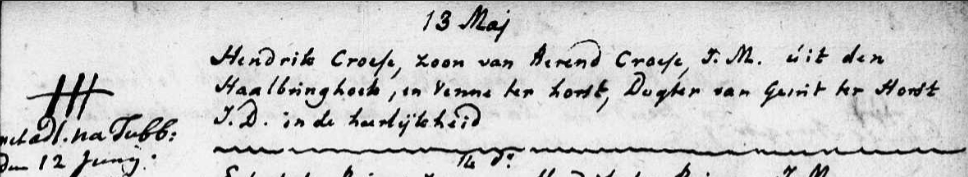 13 Maj
Hendrik Croese, zoon van Aerend Croese, J. M. uit den
Haalbringhoek, en Venne ter horst, Dogter van Gerrit ter Horst
J. D. in de heerlijkheid
met adt. na Tubb:
den 12 Junij:
14 d: